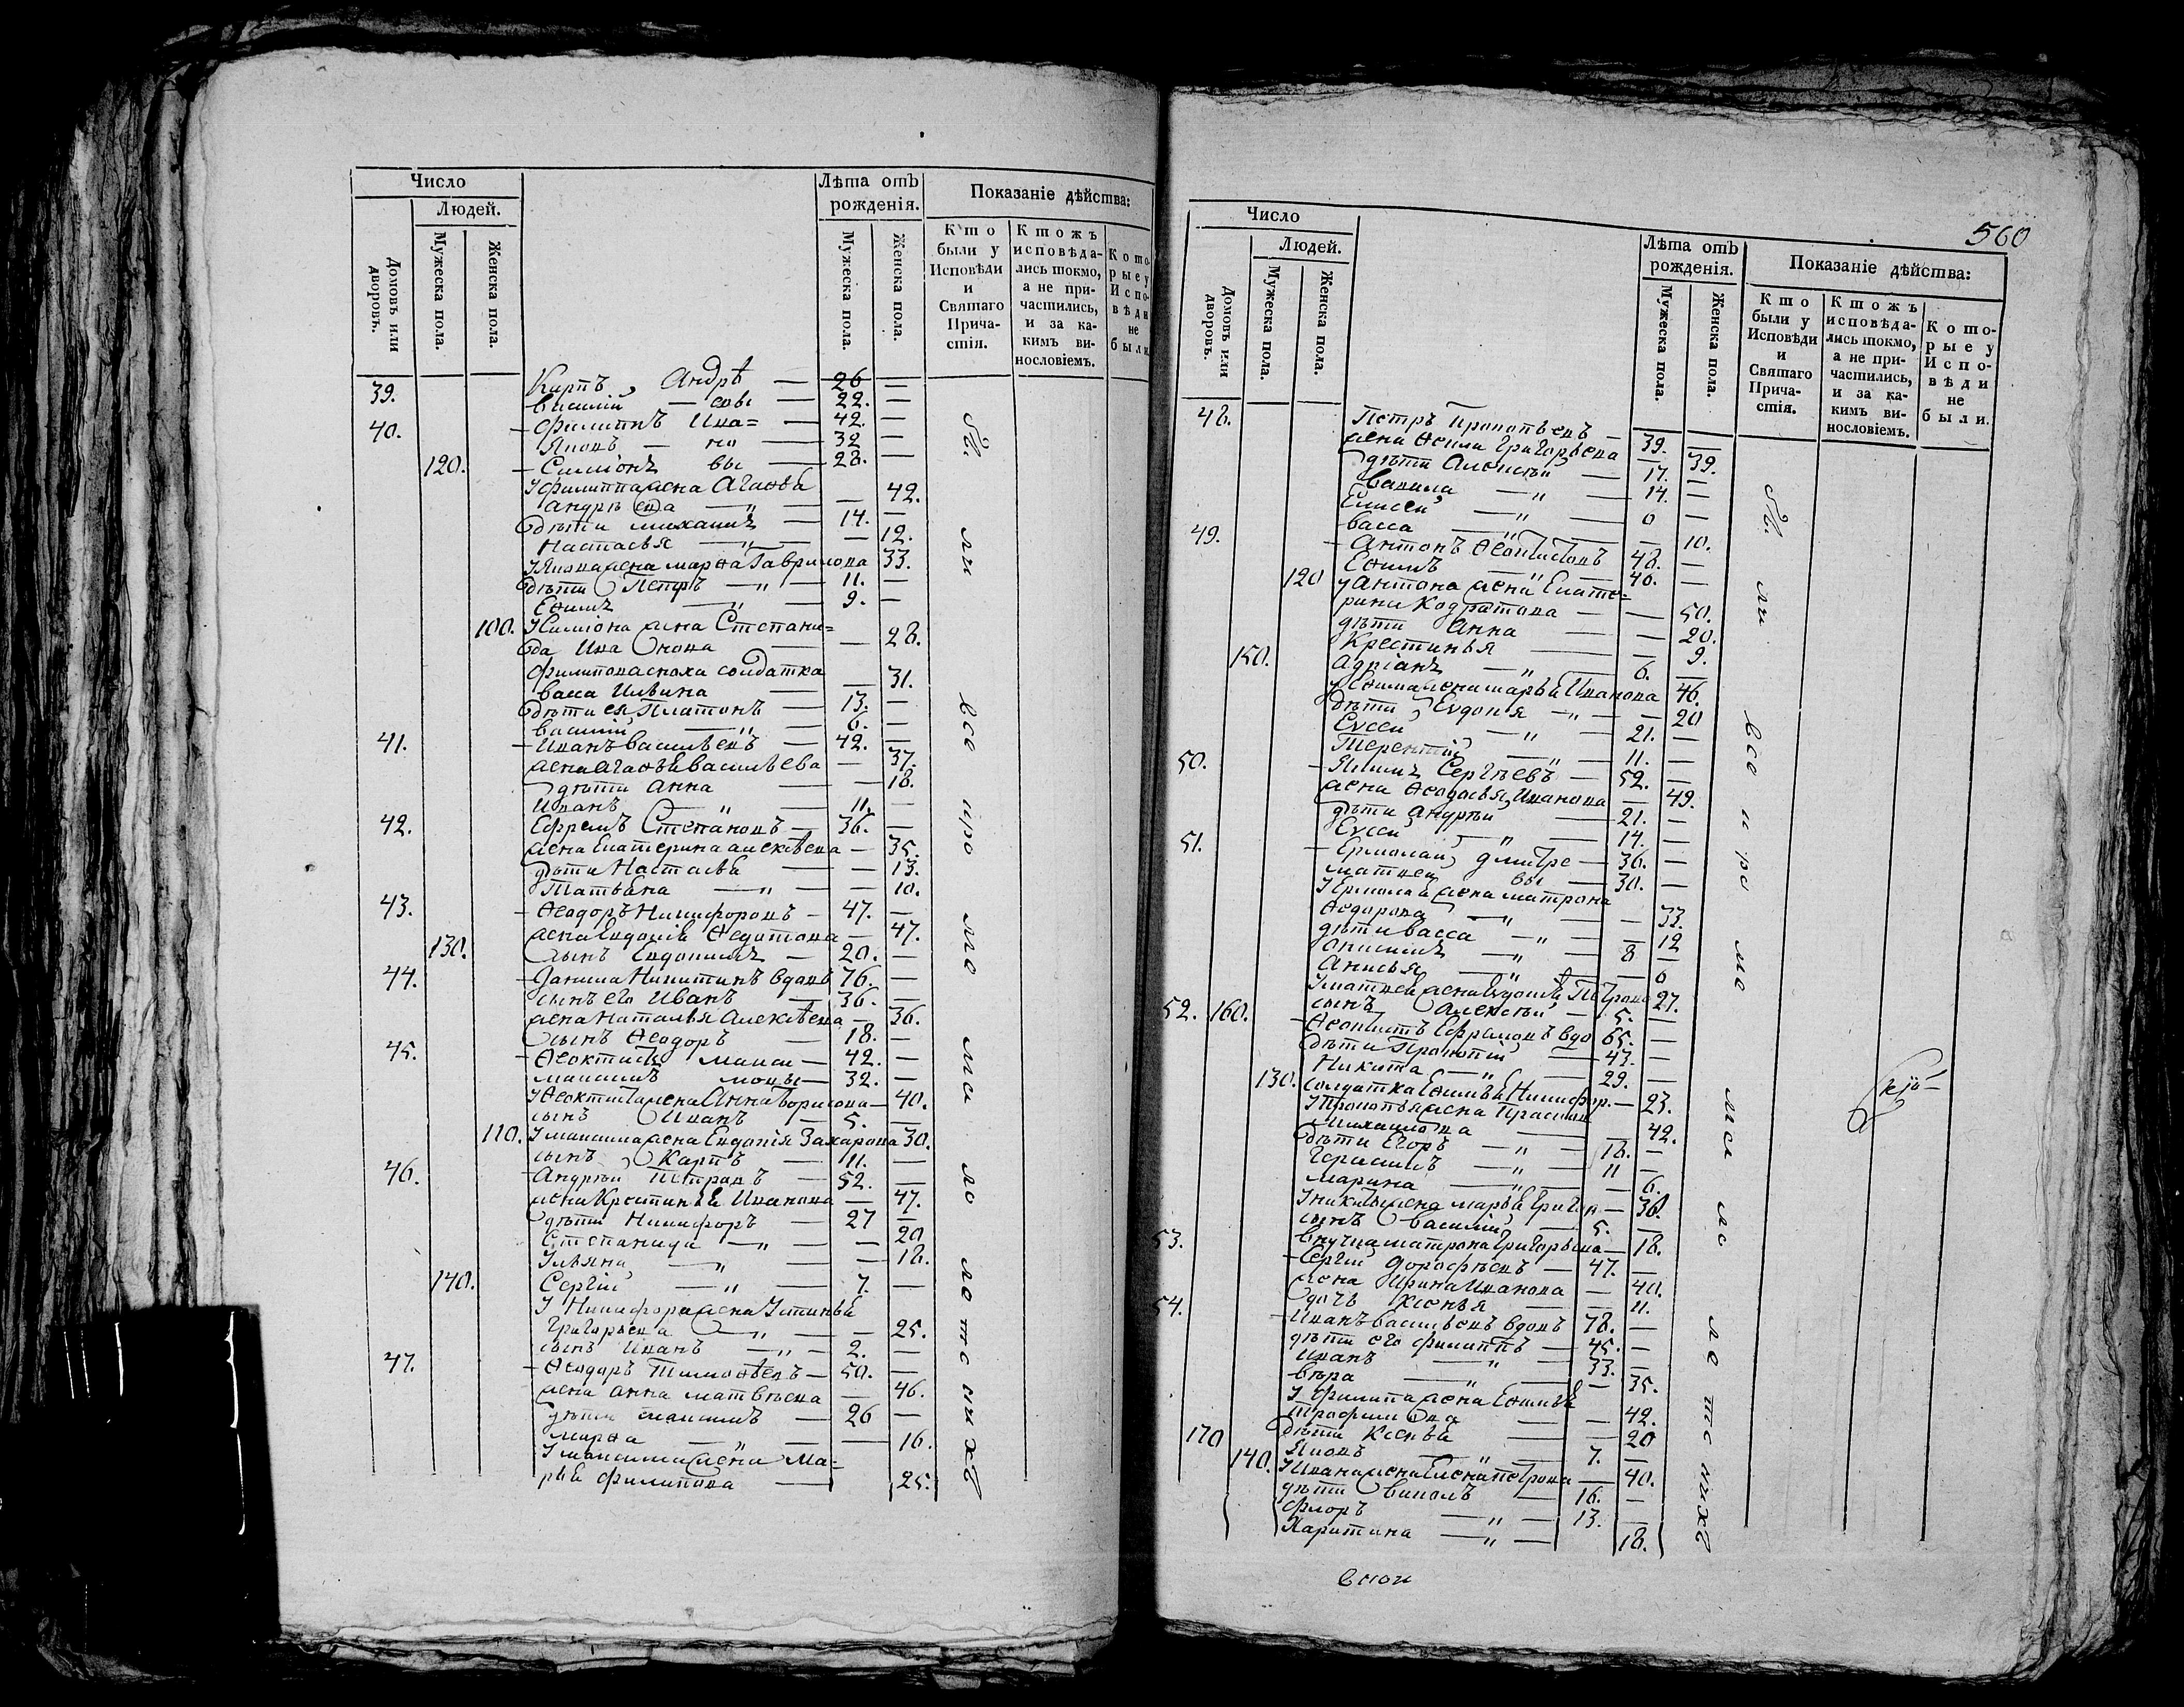 Число
Людей.
Домовъ или дворовъ.
Мужеска пола.
Женска пола.
Лѣта отъ рожденія.
Мужеска пола.
Женска пола.
Показаніе дѣйства:
Кто были у Исповѣди и Святаго Причастія.
Ктожъ исповѣдались токмо, а не причастились, и за какимъ винословіемъ.
Которые у Исповѣди не были.
39. Карпъ Андрѣ — 26 —
Василий — евы — 22. —
40. Филиппъ Ива= — 42. —
Яковъ — но — 32 —
120. Симіонъ вы — 28. —
У филиппа жена Агафья
Андрѣева — " — — 42.
Дѣти Михаилъ — 14. —
Настасья — " — — 12.
У Якова жена Марѳа Гаврилова 33.
Дѣти Петръ — " — 11. —
Ефимъ — " — 9. —
100. У Симіона жена Степани=
да Ива нова — — 28.
Филипова сноха солдатка
Васса Ильина — — 31.
Дѣти ея Платонъ — 13. —
Василий — " — 6. —
41. Иванъ Васильевъ — 42. —
жена Агафья Васильева — 37.
Дѣти Анна — — 18.
Иванъ — " — 11. —
42. Ефремъ Степановъ — 36. —
жена Екатерина Алексѣева — 35.
дѣти Настасья — — 13.
Татьяна — " — — 10.
43. Ѳеодоръ Никифоровъ — 47. —
жена Евдокія Ѳедотова — 47.
130. Сынъ Евдокимъ — 20. —
44. Данила Никитинъ вдовъ 76. —
сынъ его Иванъ — 36. —
жена Наталья Алексѣева — 36.
Сынъ Ѳеодоръ — 18. —
45. Ѳеоктистъ Макси — 42. —
Максимъ мовы — 32. —
У Ѳеоктиста жена Анна Борисова — 40.
сынъ Иванъ — 5. —
110. У Максима жена Евдокія Захарова 30.
сынъ Карпъ — 11. —
46. Андрѣй Петровъ — 52. —
жена Крестинья Иванова — 47.
Дѣти Никифоръ — 27 —
Степанида — " — — 20
Ульяна — " — — 18.
140. Сергій — " — 7. —
У Никифора жена Устинья
Григорьева — " — — 25.
сынъ Иванъ — " — 2. —
47. Ѳеодоръ Тимофѣевъ — 50. —
жена Анна Матвѣева — 46.
дѣти Максимъ — 26 —
Марѳа — " — — 16.
У Максима жена Ма=
рья Филипова — 25.
Вси все проме мси ло летснихъ
560
Число
Людей.
Домовъ или дворовъ.
Мужеска пола.
Женска пола.
Лѣта отъ рожденія.
Мужеска пола.
Женска пола.
Показаніе дѣйства:
Кто были у Исповѣди и Святаго Причастія.
Ктожъ исповѣдались токмо, а не причастились, и за какимъ винословіемъ.
Которые у Исповѣди не были.
48. Петръ Прокопьевъ — 39. —
жена Ѳекла Григорьева — 39.
Дѣти Алексѣй — 17. —
Вавила — " — 14. —
Елисей — " — 6 —
Васса — " — — 10.
49. Антонъ Ѳеоктистовъ 48. —
Ефимъ — " — 40. —
120 у Антона жена Екате=
рина Кодратова — — 50.
дѣти Анна — — 20.
Крестинья — — 9.
150. Адріанъ — " — 6. —
у Ефима жена Марья Иванова 46.
дѣти Евдокія — " — — 20
Евсей — " — 21. —
Терентій — " — 11. —
50. Якимъ Сергѣевъ — 52. —
жена Ѳеодосья Иванова — 49.
Дѣти Андрѣй — 21. —
Евсей — " — 14. —
51. Ермолай Дмитре — 36. —
Матвей вы — 30. —
У Ермолая жена Матрона
Ѳедорова — " — — 33.
дѣти Васса — " — — 12
Онисимъ — " — 8 —
Анисья — " — — 6
У Матвея жена Евдокія Петрова 27.
сынъ Алексѣй — 5. —
52. 160. Ѳеоктистъ Ефремовъ вдо 65. —
Дѣти Прокопій — 43. —
Никита — " — 29. —
130. солдатка Ефимья Никифор. — 23.
У Прокопья жена Прасков
Михайлова — — 42.
Дѣти Егоръ — " — 18. —
Герасимъ — " — 11 —
Марина — " — — 6.
У Никиты жена Марья Григор — 36.
сынъ Василій — 5. —
внучка Матрона Григорьева — 18.
53. Сергій Дорофѣевъ — 47. —
жена Ирина Иванова — 40.
Дочь Ксенья — — 11.
54. Иванъ Васильевъ вдовъ 78. —
дѣти его Филиппъ — 45. —
Иванъ — " — 33. —
Вѣра — " — — 35.
У Филипа жена Ефимья
Трофимова — — 42.
Дѣти Ксенья — — 20
170 Яковъ — " — 7. —
140. У Ивана жена Елена Петрова — 40.
дѣти Ваколъ — 16. —
Флоръ — " — 13. —
Харитина — " — 18.
внои